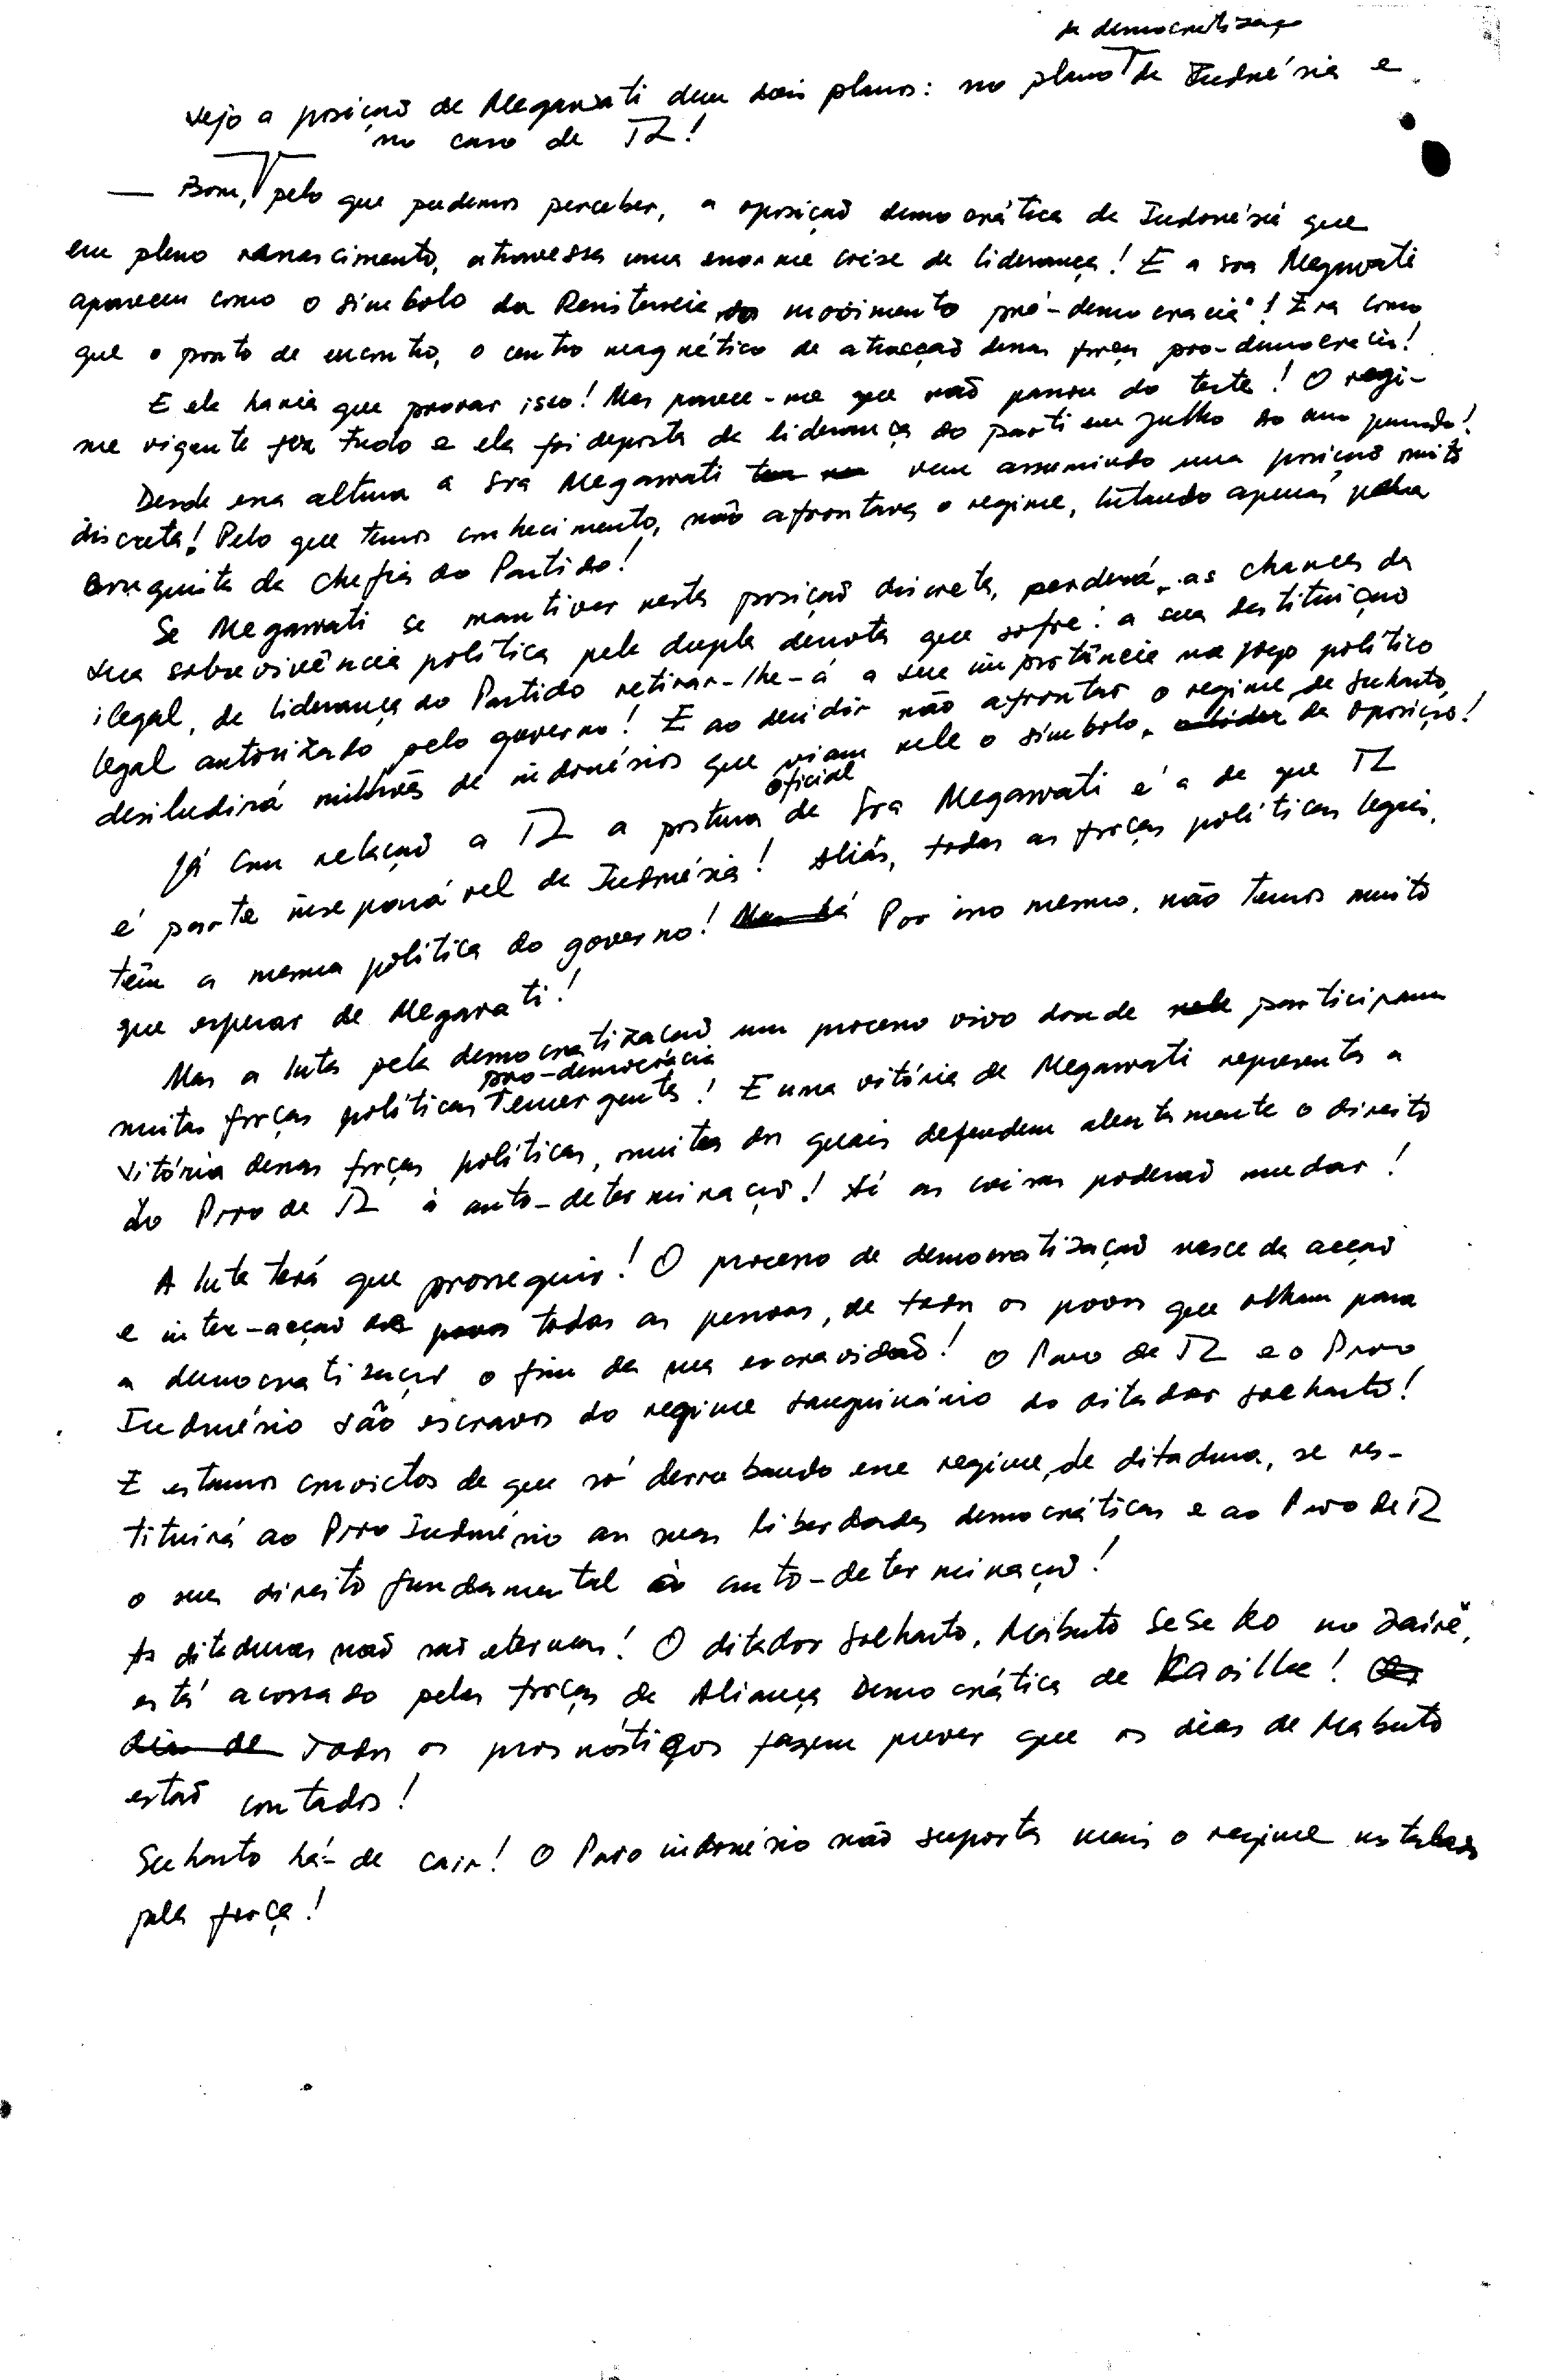 da democratização
Vejo a posição de Megawati em dois planos: no plano de Indonésia e
no caso de TL!
— Bom, pelo que pudemos perceber, a oposição democrática da Indonésia que
em pleno renascimento, atravessa uma enorme crise de liderança! E a sra Megawati
apareceu como o símbolo da Resistencia do movimento pró-democracia"! Era como
que o ponto de encontro, o centro magnético de atracção dessas forças pro-democracia!
E ela havia que provar isso! Mas parece-me que não passou do teste! O regi-
me vigente fez tudo e ela foi deposta da liderança do parti em Julho do ano passado!
Desde essa altura a Sra Megawati vem assumindo uma posição muito
discreta! Pelo que temos conhecimento, não afrontava o regime, lutando apenas pela
conquista da Chefia do Partido!
Se Megawati se mantiver nesta posição discreta, perderá as chances da
sua sobrevivência política pela dupla derrota que sofre: a sua destituição
ilegal, de liderança do Partido retirar-lhe-á a sua importância no jogo político
legal autorizado pelo governo! E ao decidir não afrontar o regime de Suharto,
desiludirá milhões de indonésios que viam nela o símbolo, da oposição!
oficial
Já com relação a TL a postura da Sra Megawati é a de que TL
é parte inseparável da Indonésia! Aliás, todas as forças políticas legais,
têm a mesma política do governo! Por isso mesmo, não temos muito
que esperar de Megawati!
Mas a luta pela democratização um processo vivo donde participam
pro-democrácia
muitas forças políticas emergentes! E uma vitória de Megawati representa a
vitória dessas forças políticas, muitas das quais defendem abertamente o direito
do Povo de TL à auto-determinação! Aí as coisas poderão mudar!
A luta terá que prosseguir! O processo de democratização nasce da acção
e inter-acção de todas as pessoas, de todos os povos que olham para
a democratização o fim da sua escravidão! O Povo de TL e o Povo
Indonésio são escravos do regime sanguinário do ditador Soeharto!
E estamos convictos de que só derrubando esse regime, de ditadura, se res-
tituirá ao Povo Indonésio as suas liberdades democráticas e ao Povo de TL
o seu direito fundamental à auto-determinação!
As ditaduras não são eternas! O ditador Soeharto, Mobuto Sese Ko no Zaire",
está acossado pelas forças da Aliança Democrática de Kabilha!
Todos os prosnósticos fazem prever que os dias de Mabuto
estão contados!
Suharto há-de cair! O Povo indonésio não suporta mais o regime instalado
pela força!